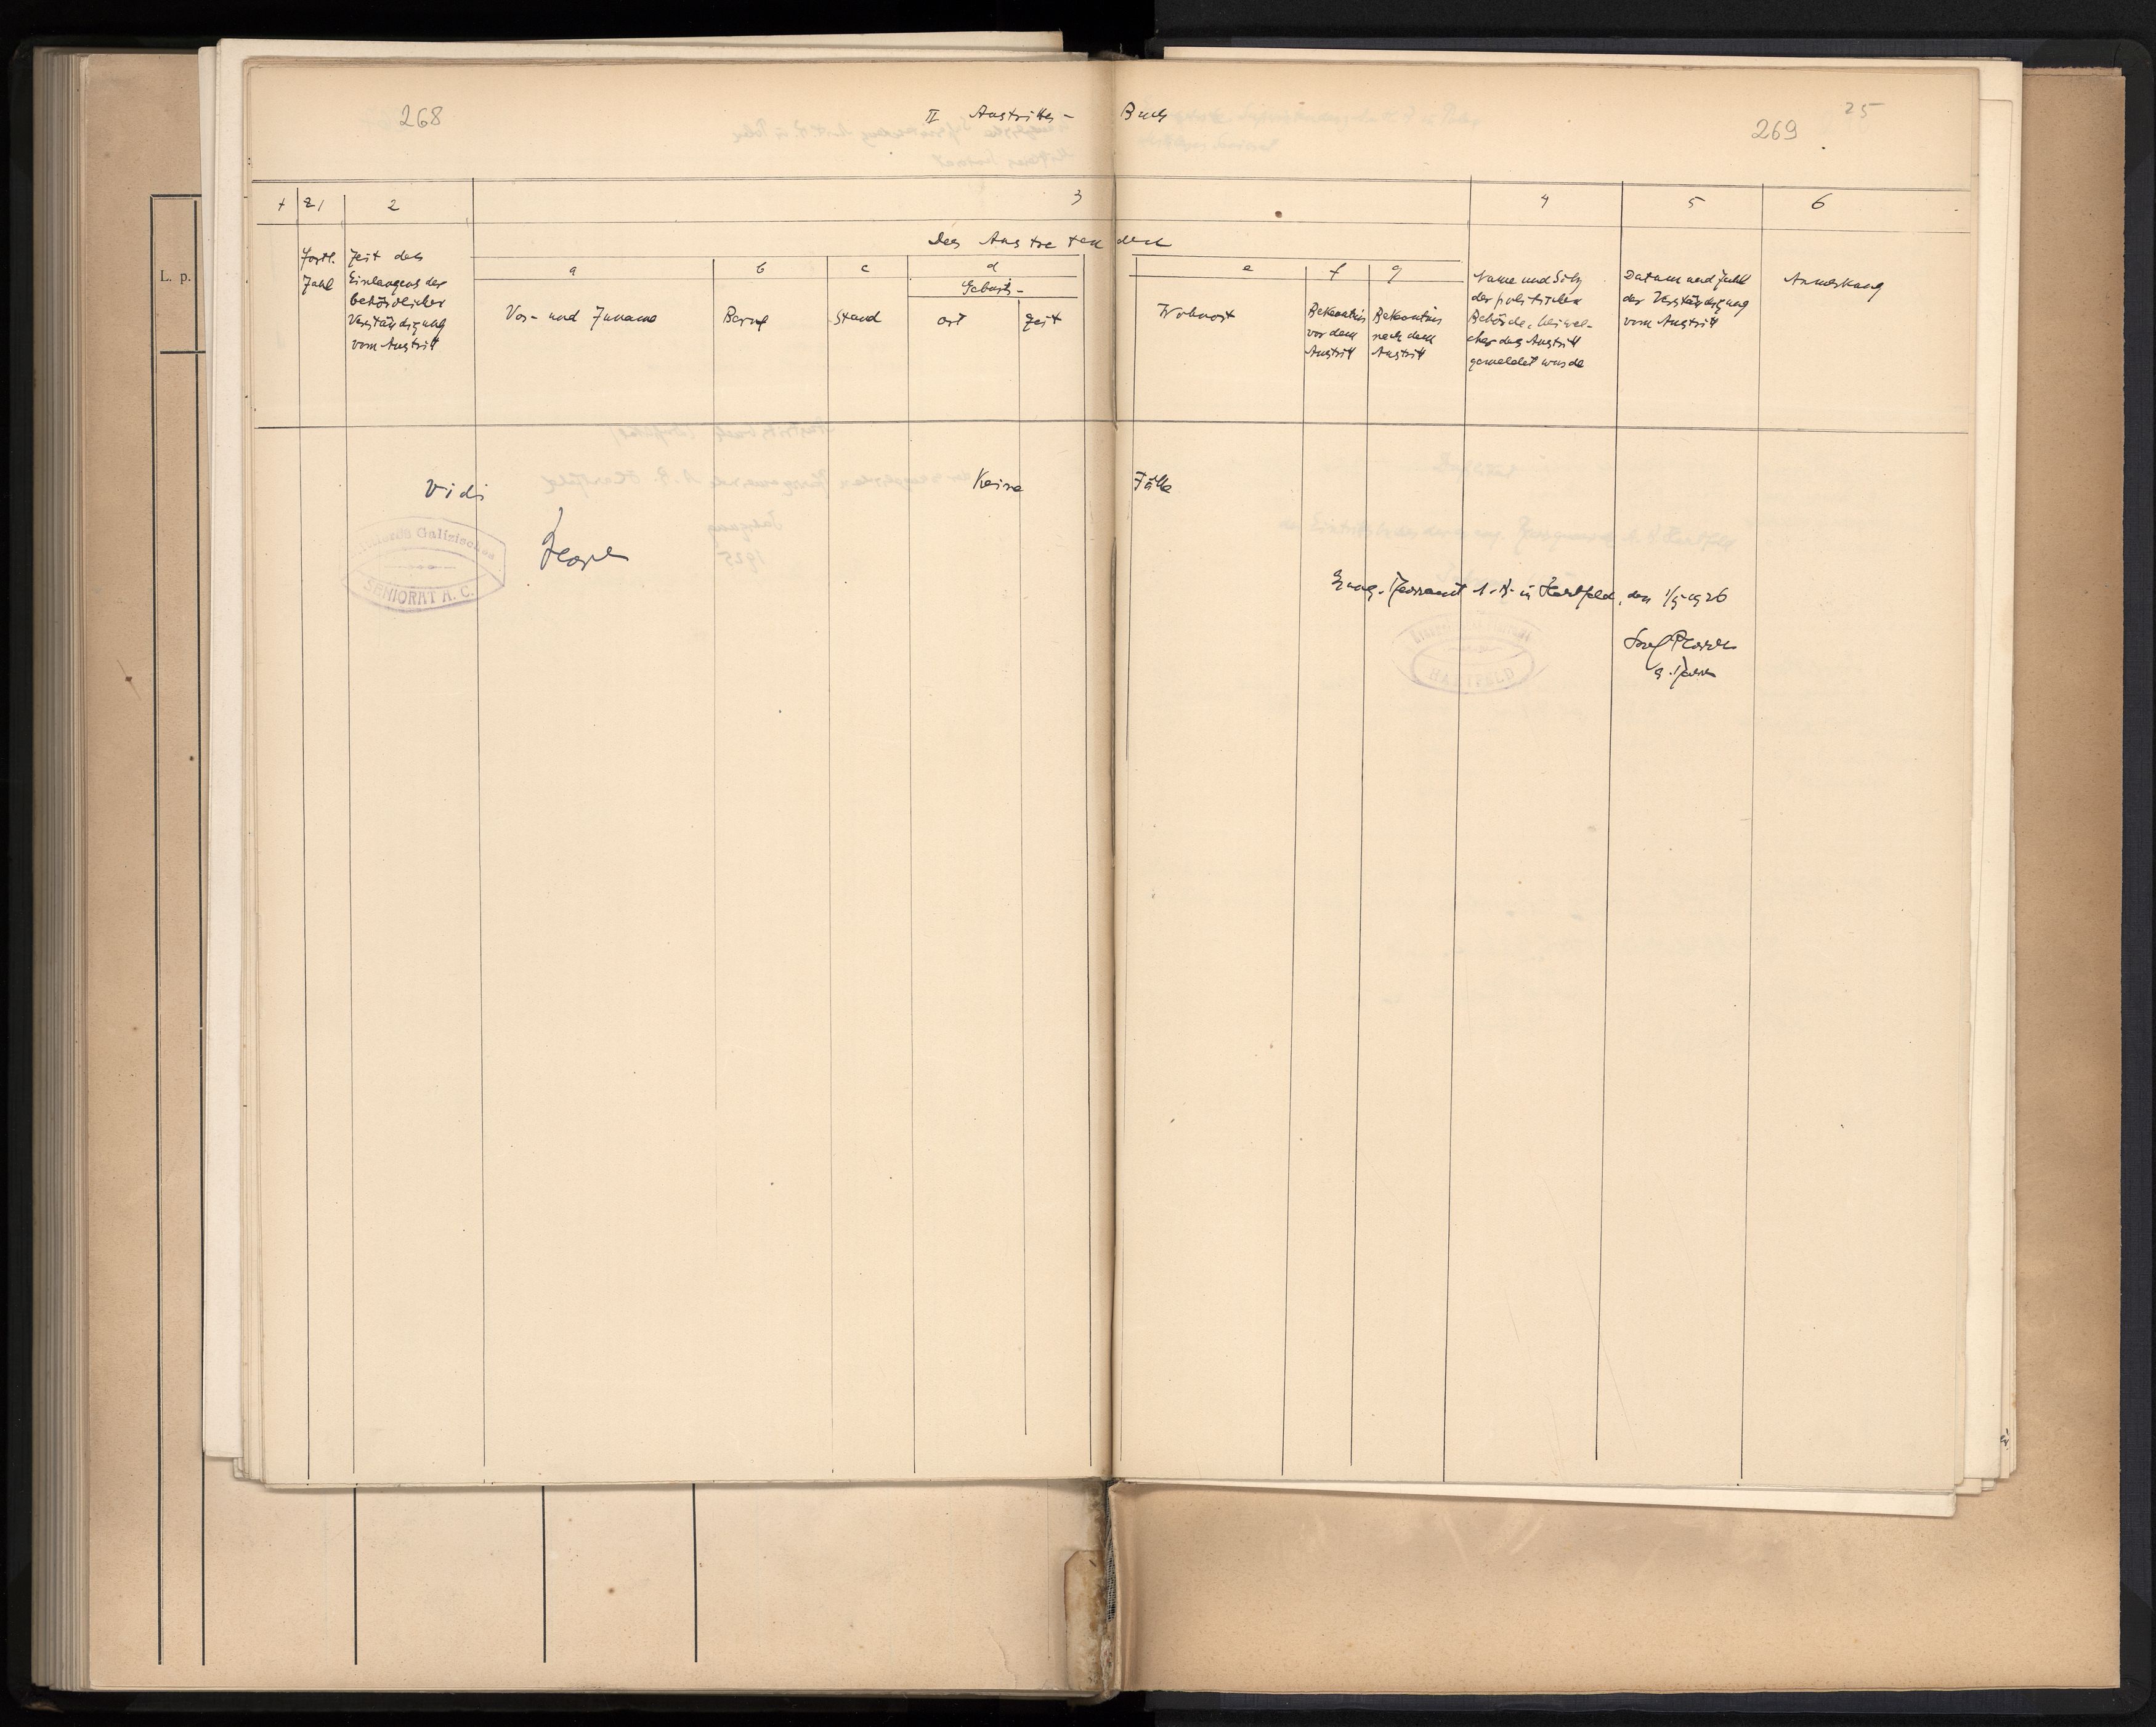 268
II Austritts- Buch
269
25
L. p.
+ 1 2 3 4 5 6
Des Austretenden
Fortl.
Zahl
Zeit des
Einlangens der
behördlicher
Verständigung
vom Austritt
a b c d e f g
Geburts-
Vor- und Zuname
Beruf
Stand
ort
zeit
Wohnort
Bekenntnis
vor dem
Austritt
Bekenntnis
nach dem
Austritt
Name und Sitz
der politischen
Behörde, bei wel-
cher der Austritt
gemeldet wurde
Datum und Zahl
der Verständigung
vom Austritt
Anmerkung
Vidi
Keine Fälle
Galizisches
SENIORAT A. C.
Evang. Pfarramt A. B. in Hartfeld, den 1/5 1926
HARTFELD